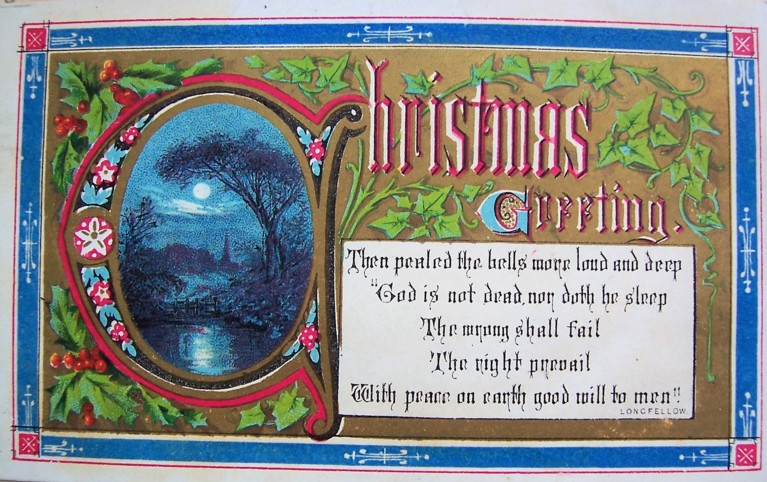 Christmas
Greeting.
Then pealed the bells more loud and deep
"God is not dead, nor doth he sleep
The wrong shall fail
The right prevail
With peace on earth good will to men"
LONGFELLOW.